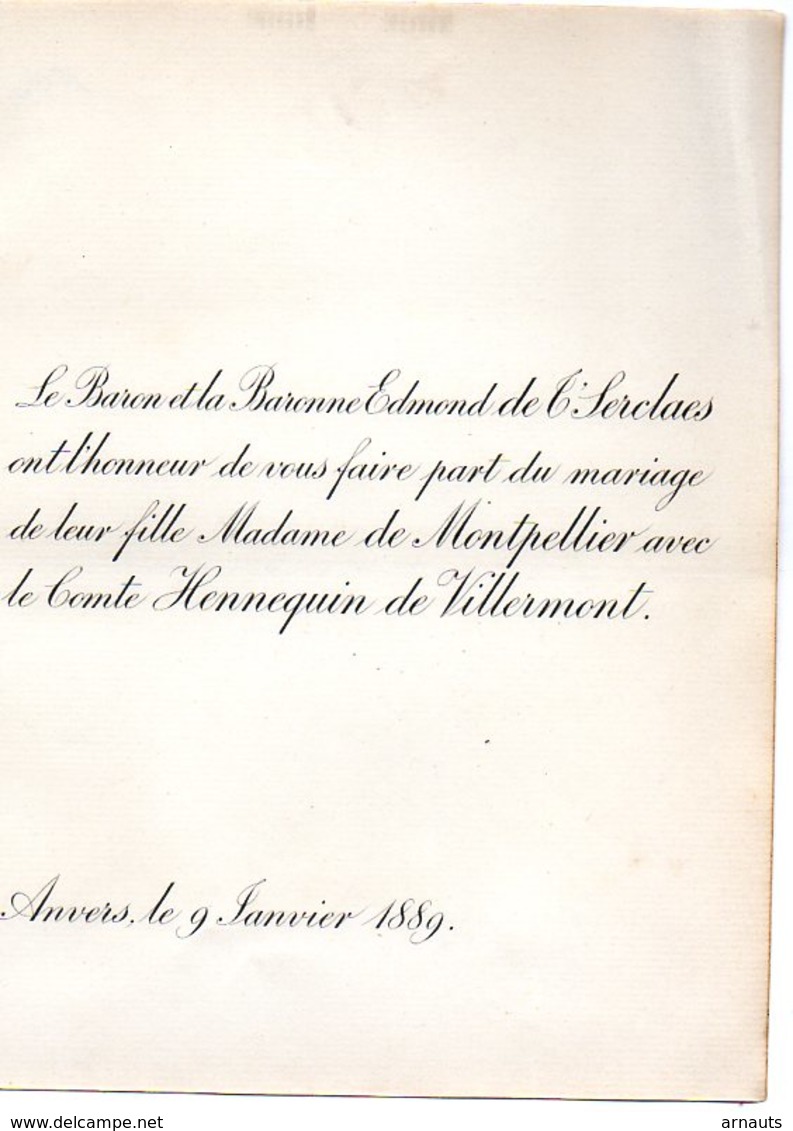 Le Baron et la Baronne Edmond de T'Serclaes
ont l'honneur de vous faire part du mariage
de leur fille Madame de Montpellier avec
le Comte Hennequin de Villermont.
Anvers, le 9 Janvier 1889.
delcampe.net
arnauts